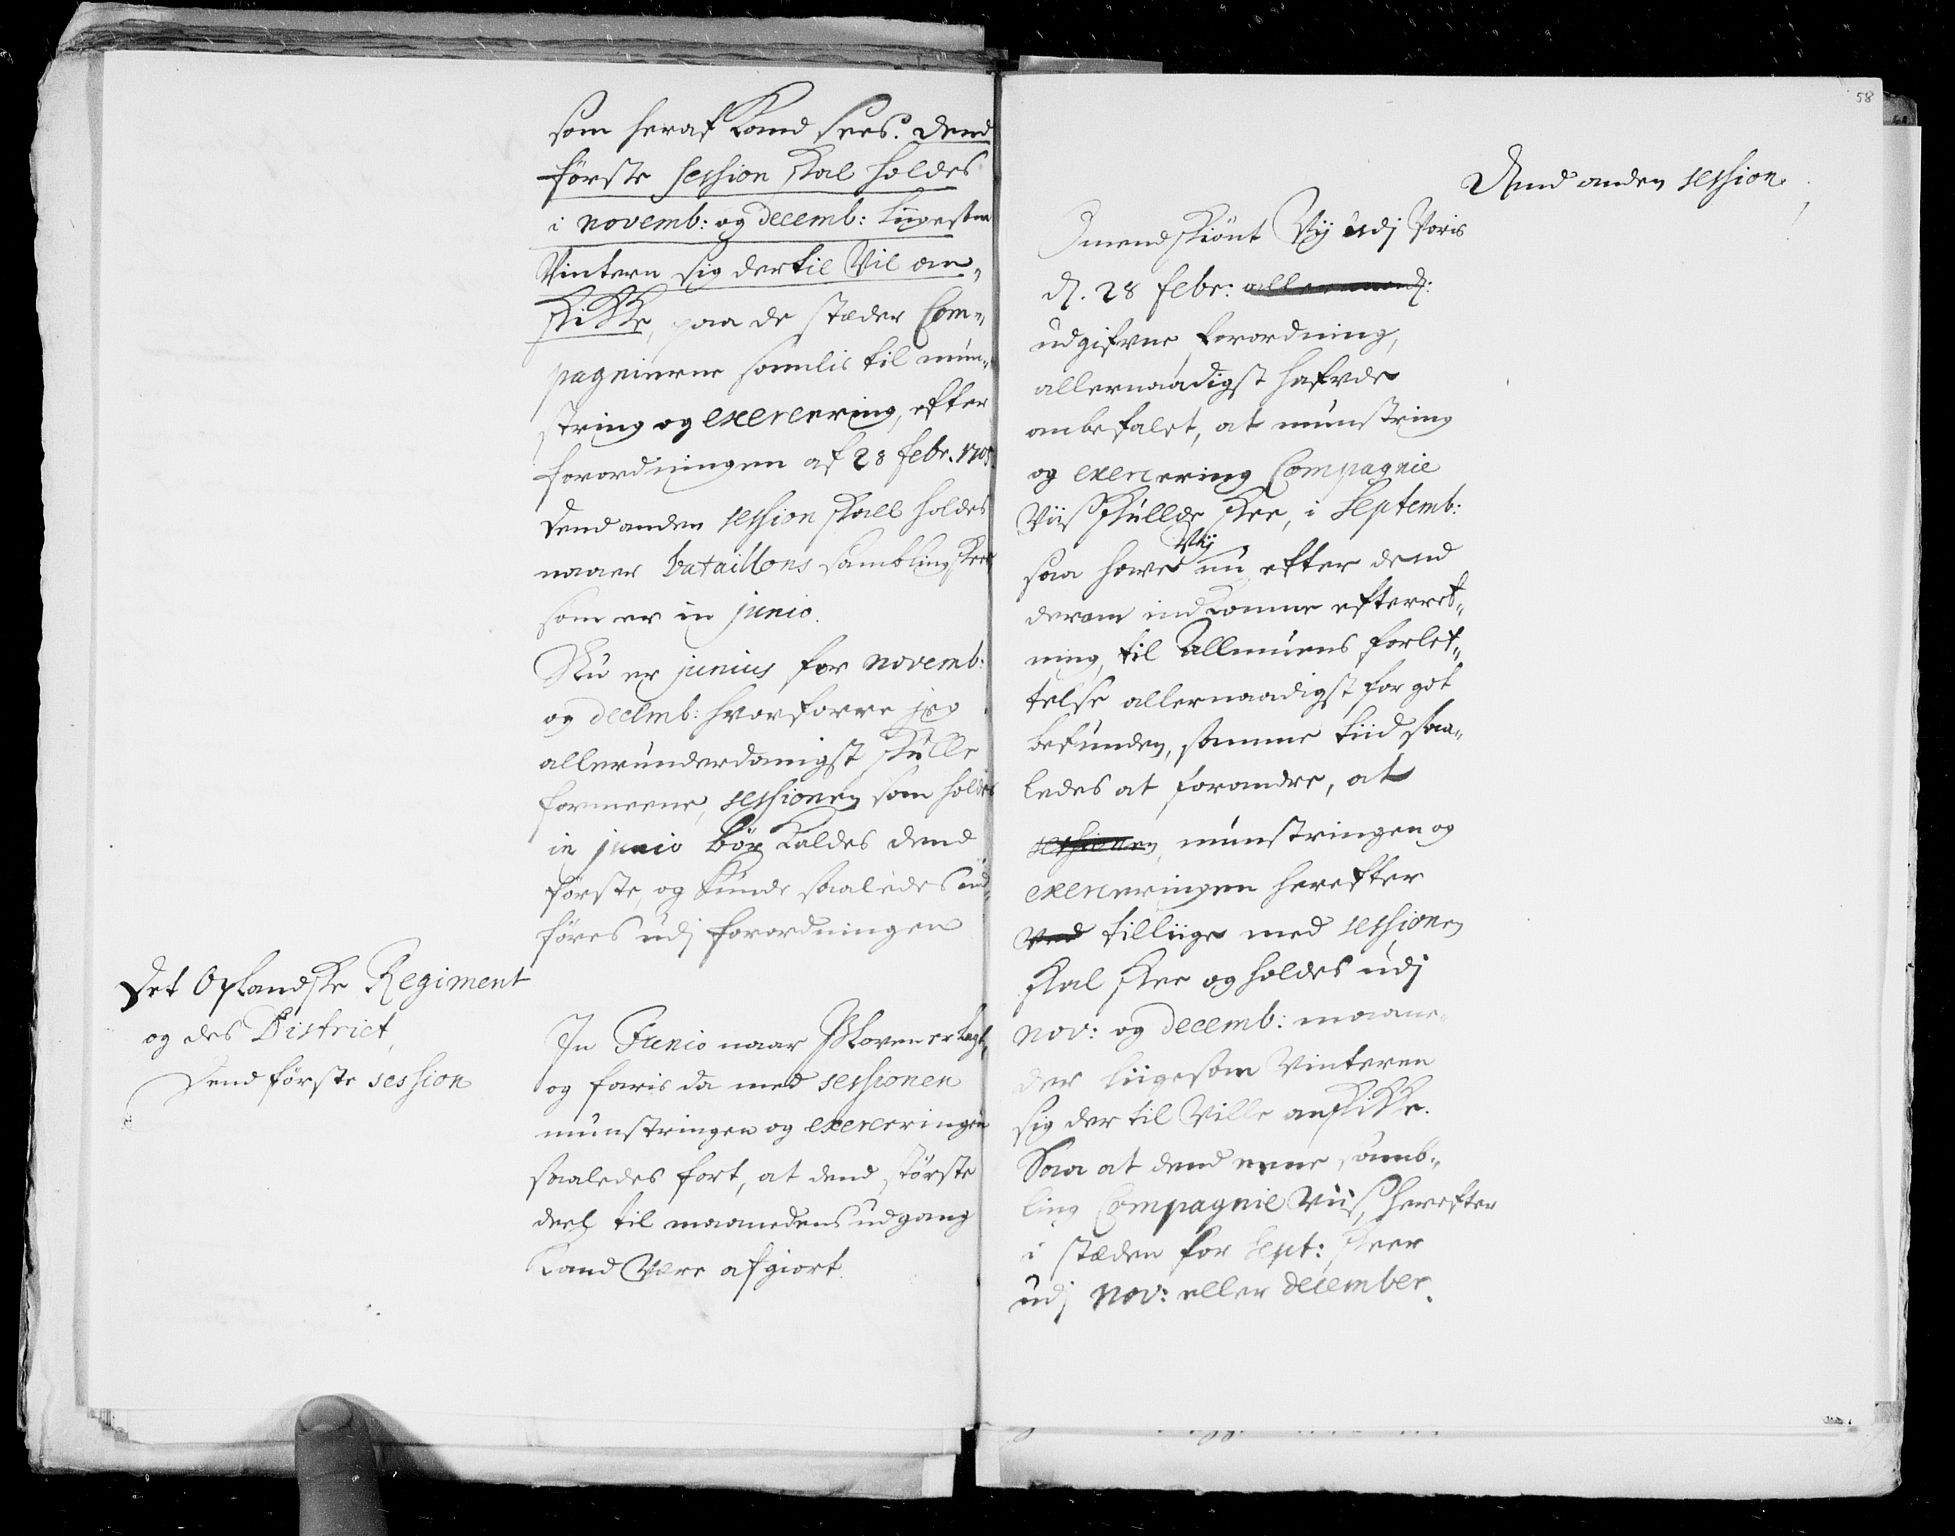 som heraf Kand sees. Dend
förste session skal holdes
i novemb: og decemb: liigesom
Vintern sig dertil Vil an„
skikke, paa de stæder Com„
pagnierne samlis til mün„
string og exercering, efter
forordningen af 28 febr. 1705.
Dend anden session skall holdes
naar bataillons sambling skeer
som er in junio.
Nu er junius for novemb:
og decemb: hvorforre jeg
allerunderdanigst skulle
formeene, sessionen som holdes
in junio bör Kaldes dend
förste, og kunde saaledes ind„
föres udj forordningen
Det Oplandske Regiment
og des District,
Dend förste session
In Junio naar Ploven er lagt,
og faris da med sessionen
münstringen og exerceringen
saaledes fort, at dend störste
deel til maanedens udgang
Kand Være afgiort.
58
Dend anden session
Jmendskiönt Vij udj Voris
d. 28 febr:
udgifvne forordning,
allernaadigst hafvde
anbefalet, at münstring
og exercering Compagnie
Viis skullde skee, i Septemb:
saa have Vij nu efter dend
derom indkomne efterret„
ning, til Allmuens forlet„
telse allernaadigst for got
befunden, samme tiid saa„
ledes at forandre, at
sessionen, münstringen og
exerceringen herefter
ved tilliige med sessionen
skal skee og holdes udj
nov: og decemb: maane„
der liigesom Vinteren
sig der til Ville anskikke.
Saa at dend eene samb„
ling Compagnie Viis, herefter
i stæden for Sept: skeer
udj Nov: eller december.